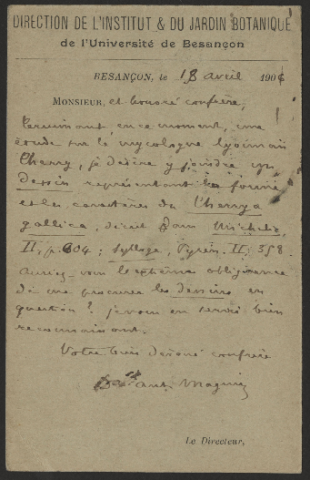 DIRECTION DE L'INSTITUT & DU JARDIN BOTANIQUE
de l'Université de Besançon
BESANÇON, le 18 avril 1904
MONSIEUR, et honoré confrère,
Terminant, en ce moment, une
étude sur le mycologue lyonnais
Therry, je désire y joindre un
dessin représentant la forme
et les caractères du Therrya
gallica, décrit dans Michelia,
II, p. 604; Sylloge, Pyren. II, 358.
Auriez-vous l'extrême obligeance
de me procurer les dessins en
question? je vous en serai bien
reconnaissant.
Votre bien dévoué confrère
Dr Ant. Magnin
Le Directeur,